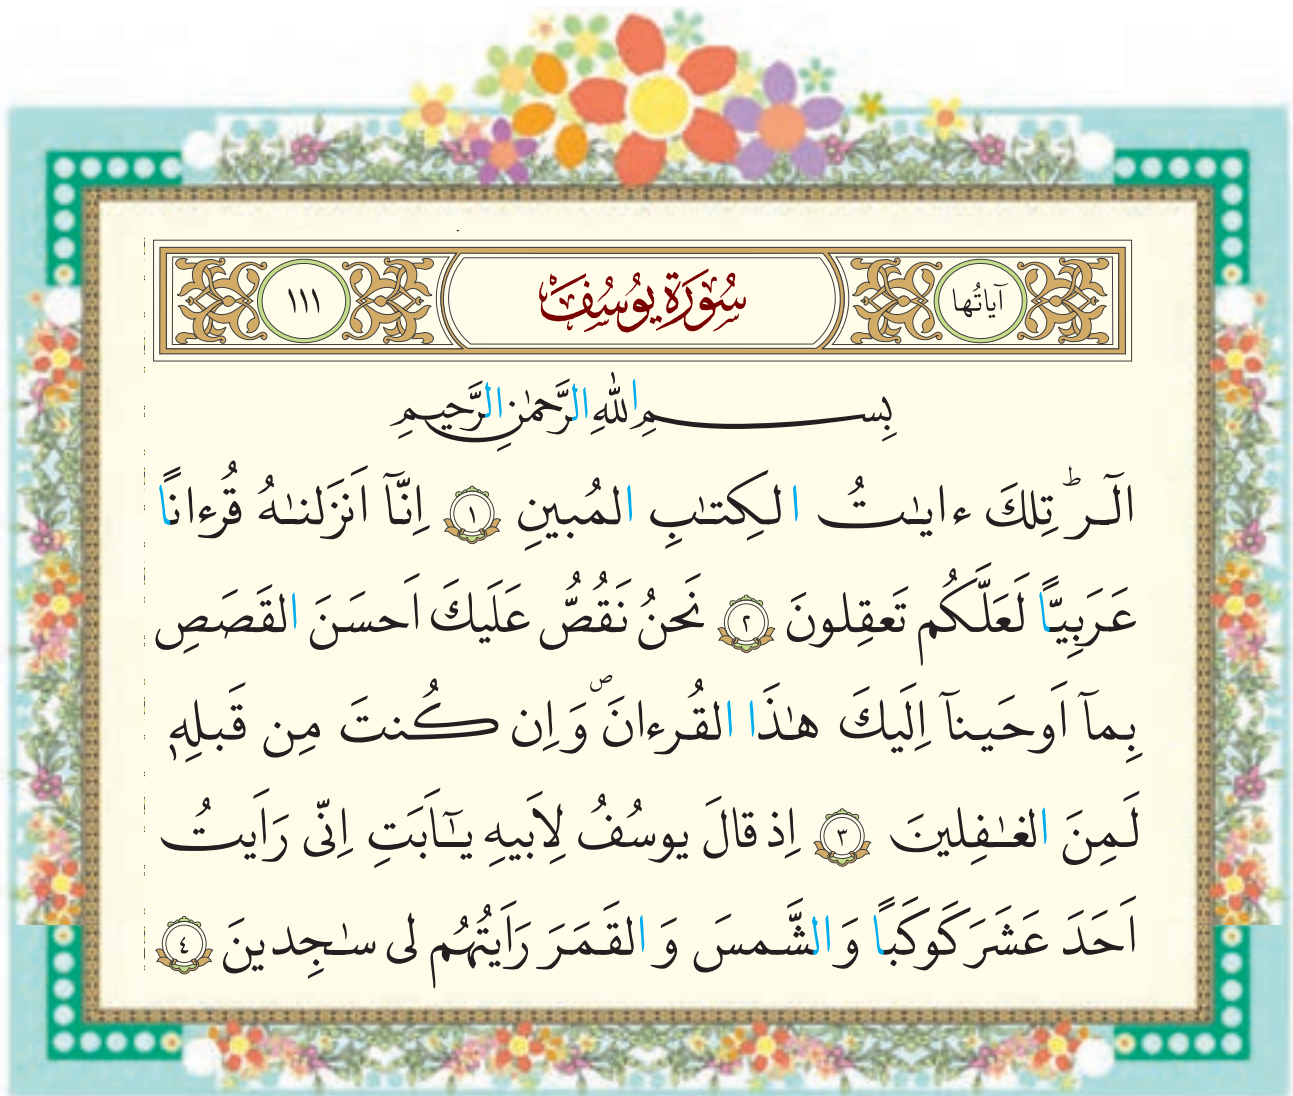 آیاتُها
سُوْرَةِ یُوسُفَ
١١١
بِسمِ اللهِ الرَّحمٰنِ الرَّحیمِ
الٓـر ۚ تِلكَ ءایـٰتُ الكِتـٰبِ المُبینِ ١ اِنّـآ اَنزَلنـٰهُ قُرءانًا
عَرَبِیًّا لَعَلَّكُم تَعقِلونَ ٢ نَحنُ نَقُصُّ عَلَیكَ اَحسَنَ القَصَصِ
بِمـآ اَوحَینـآ اِلَیكَ هـٰذَا القُرءانَ وَ اِن كُنتَ مِن قَبلِهٖ
لَمِنَ الغـٰفِلینَ ٣ اِذ قالَ یوسُفُ لِاَبیهِ یـٰٓاَبَتِ اِنّی رَاَیتُ
اَحَدَ عَشَرَ كَوكَبًا وَ الشَّمسَ وَ القَمَرَ رَاَیتُهُم لی سـٰجِدینَ ٤